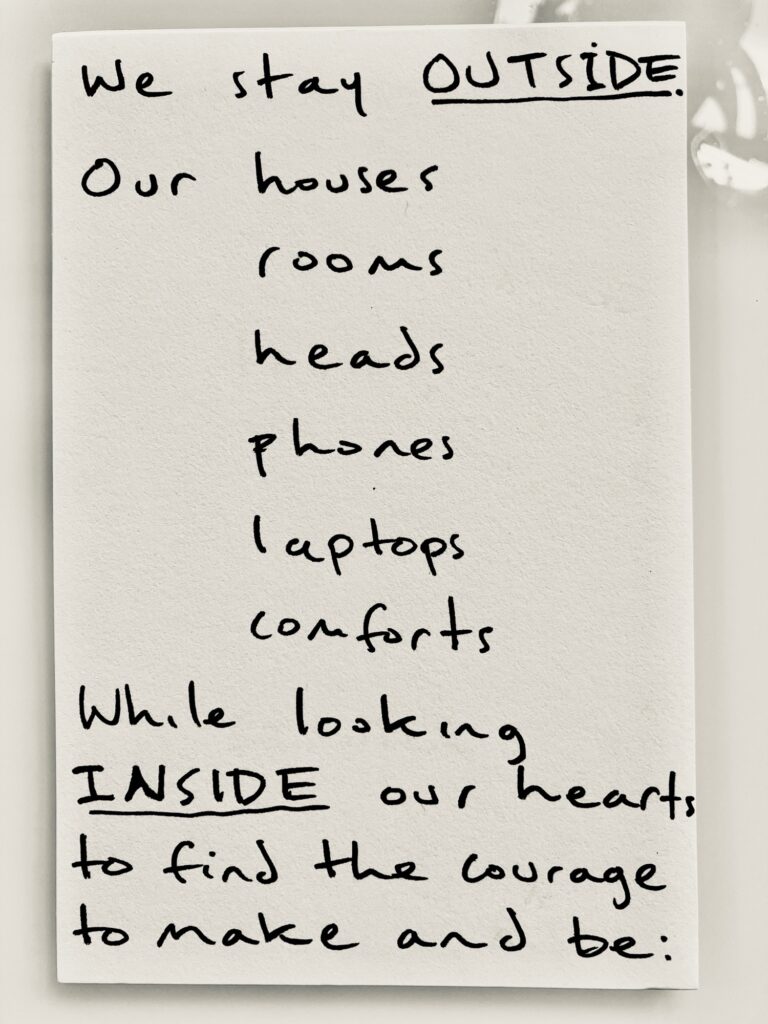 We stay OUTSIDE.
Our houses
rooms
heads
phones
laptops
comforts
While looking
INSIDE our hearts
to find the courage
to make and be: